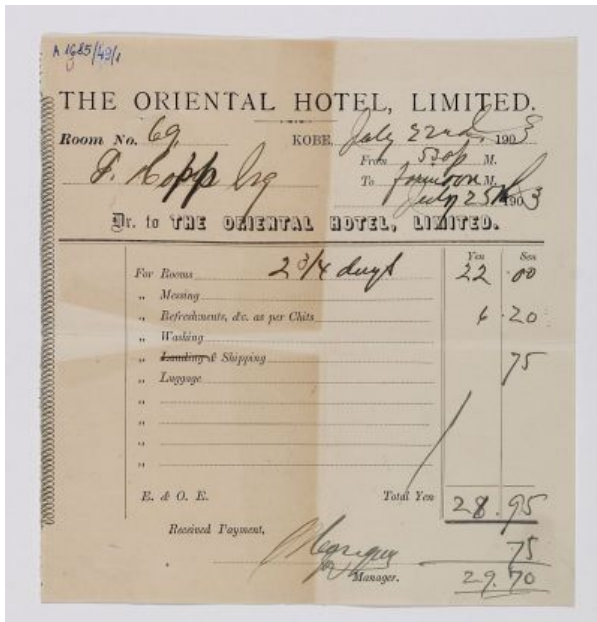 A 1685/49/1
THE ORIENTAL HOTEL, LIMITED.
Room No. 69. KOBE, July 22nd, 1903
F. Hopp Esq From 530 p M.
To forenoon M.
July 25th 1903
Dr. to THE ORIENTAL HOTEL, LIMITED.
Yen Sen
For Rooms 2 3/4 days 22 .00
„ Messing
„ Refreshments, &c. as per Chits 6 .20
„ Washing
„ Landing & Shipping 75
„ Luggage
„
„
„
„
E. & O. E. Total Yen 28.95
Received Payment, 75
Manager. 29.70